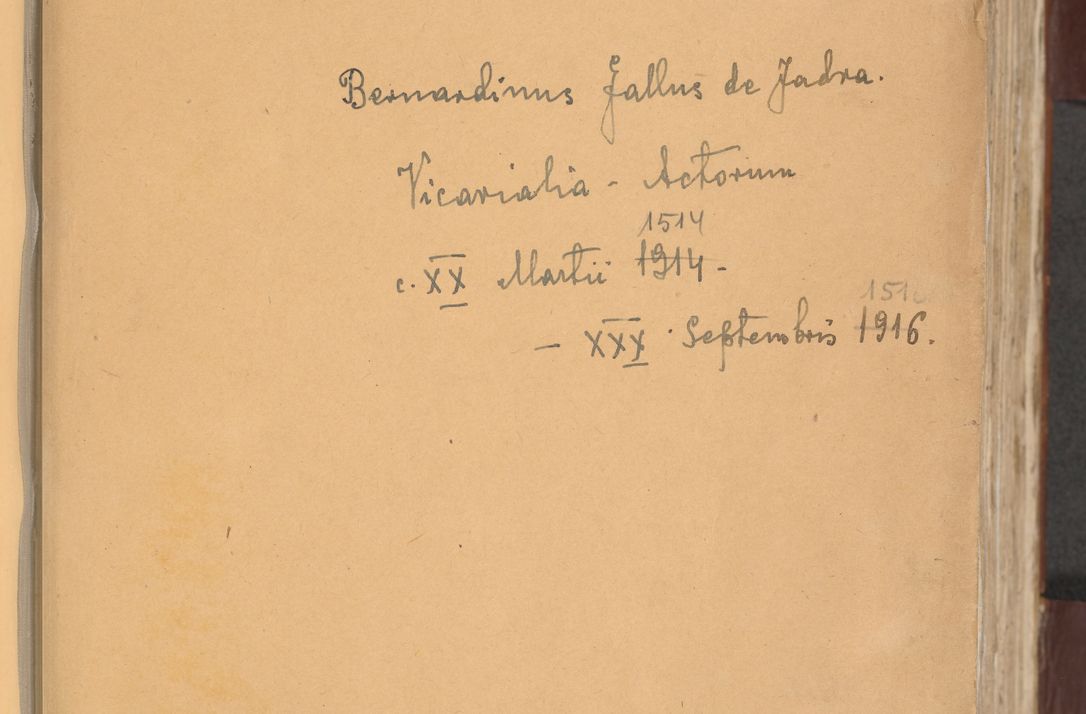 Bernardinus Gallus de Jadra.
Vicarialia - Actorum
1514
c. XX Martii 1914 -
151
- XXX Septembris 1916.